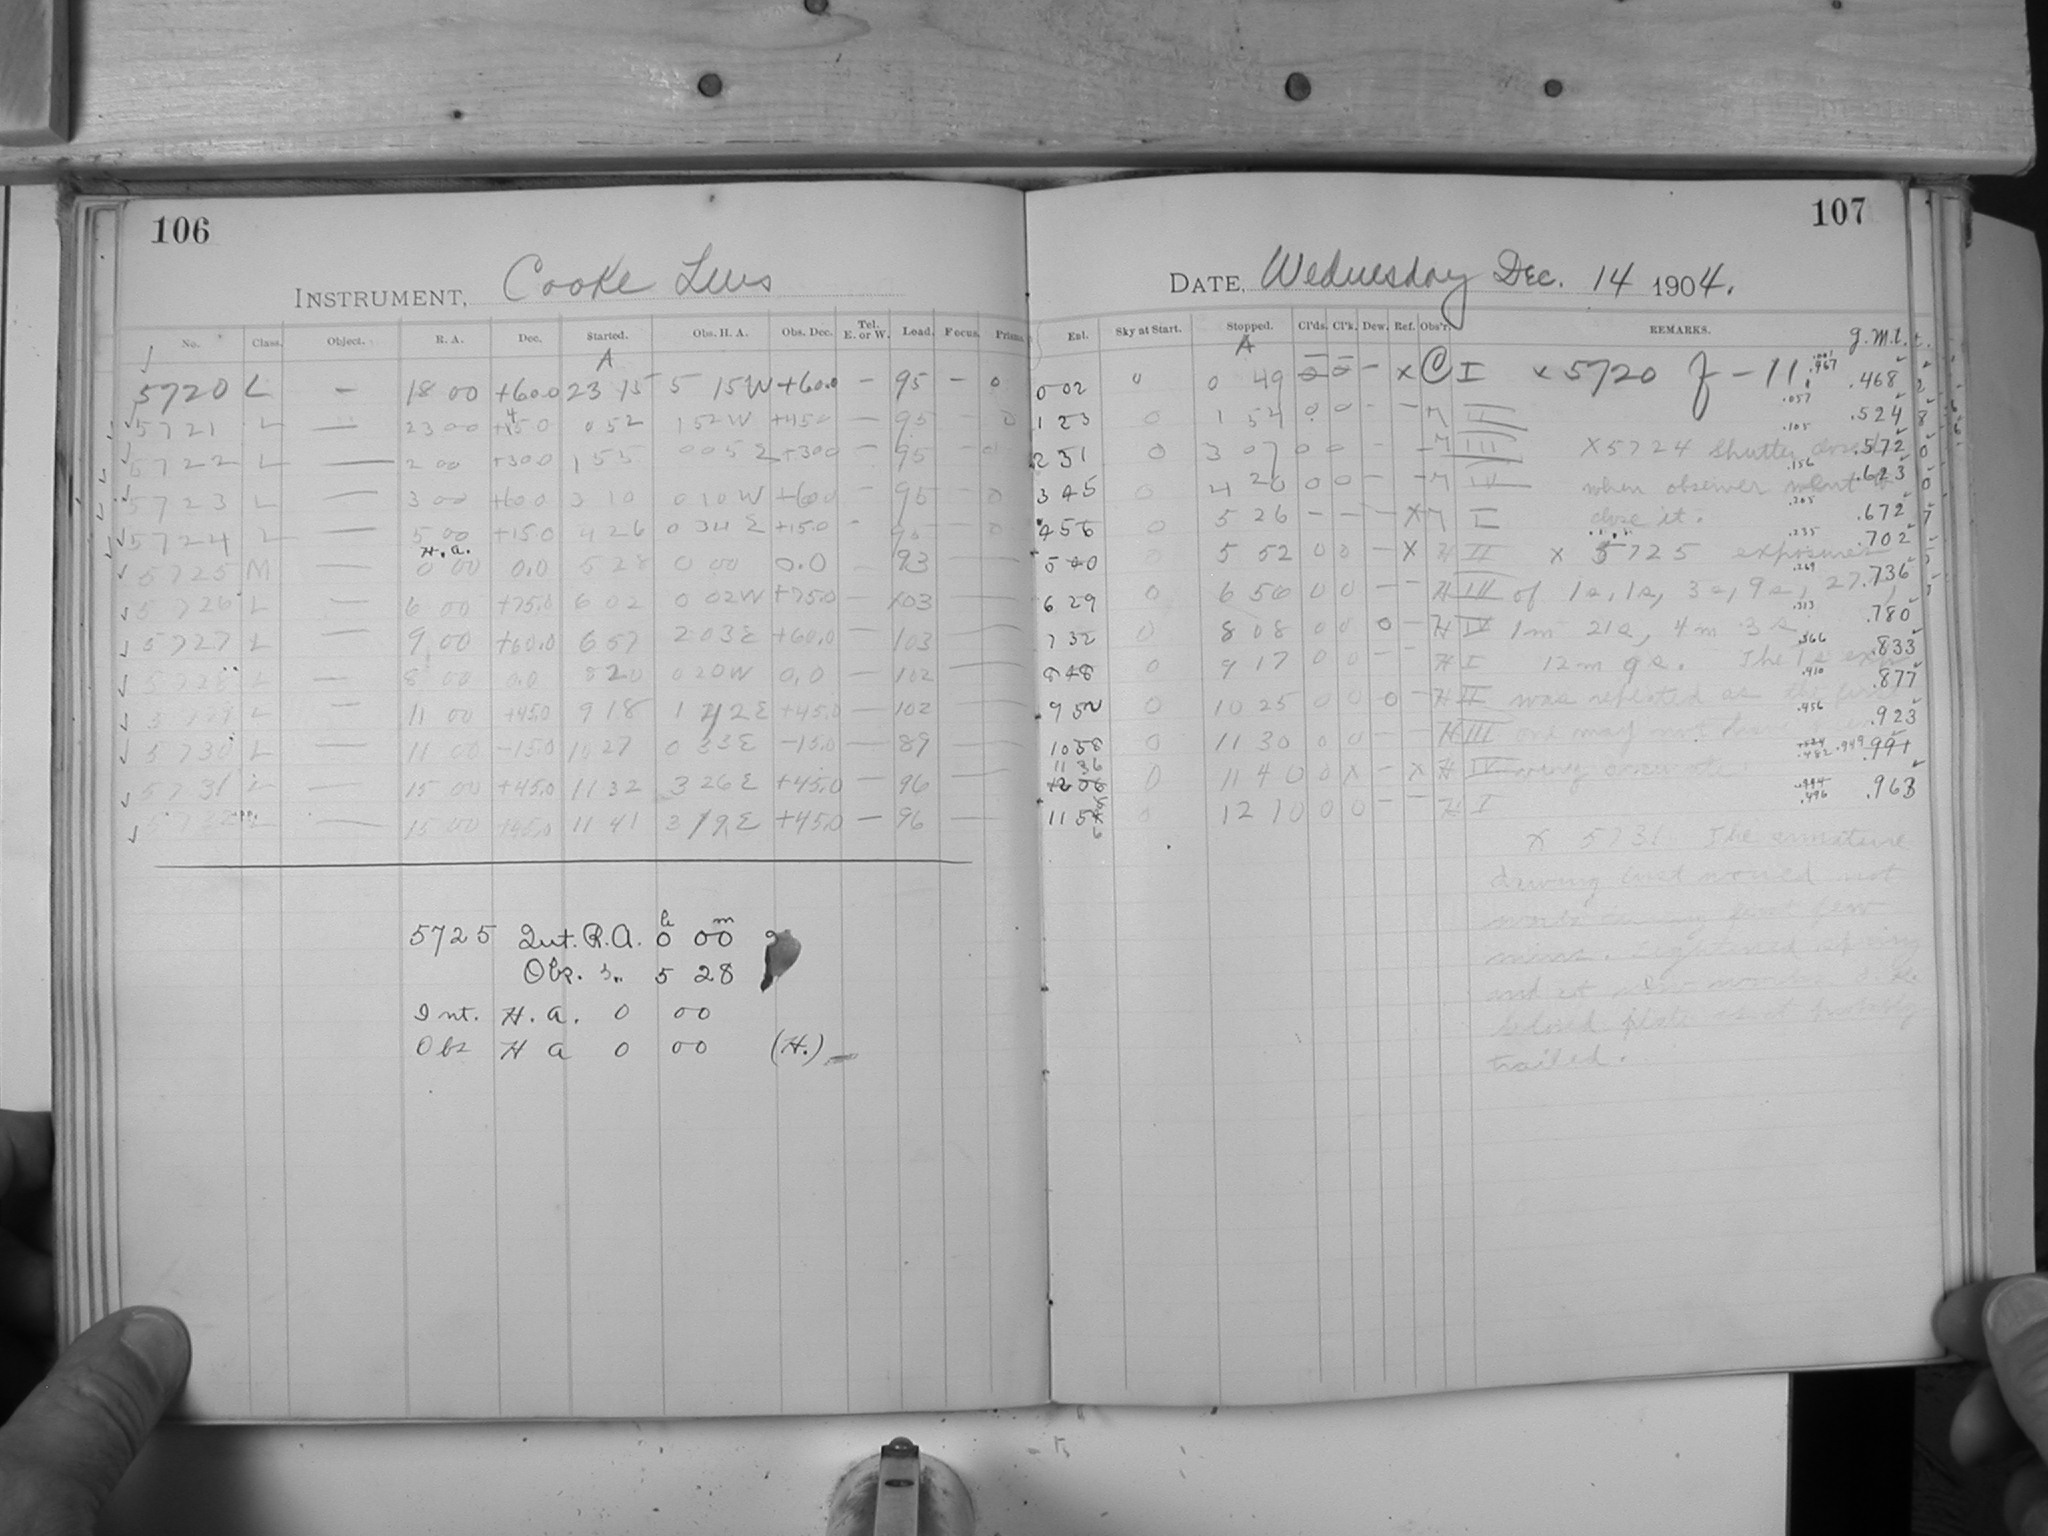 106
INSTRUMENT, Cooke Lens
No. Class. Object. R. A. Dec. Started. Obs. H. A. Obs. Dec. Tel. E. or W. Load. Focus. Prisms.
A
5720 L — 18 00 +60.0 23 15 5 15W +60.0 — 95 — 0
5721 L — 23 00 +45.0 0 52 1 52W +45.0 — 95 — 0
5722 L — 2 00 +30.0 1 55 0 05E +30.0 — 95 — 0
5723 L — 3 00 +60.0 3 10 0 10W +60.0 — 95 — 0
5724 L — 5 00 +15.0 4 26 0 34E +15.0 - 95 — 0
H.a.
5725 M 0 00 0.0 5 28 0 00 0.0 - 93 —
5726 L — 6 00 +75.0 6 02 0 02W +75.0 — 103 —
5727 L — 9 00 +60.0 6 57 2 03E +60.0 — 103 —
5728 L — 8 00 0.0 8 20 0 20W 0.0 — 102 —
5729 L — 11 00 +45.0 9 18 1 42E +45.0 — 102 —
5730 L — 11 00 -15.0 10 27 0 33E -15.0 — 89 —
5731 L — 15 00 +45.0 11 32 3 26E +45.0 — 96 —
5732 L — 15 00 +45.0 11 41 3 19E +45.0 — 96 —
5725 Int. R.A. 0h 00m
Obs. 5 28
Int. H.a. 0 00
Obs H a 0 00 (H.)
107
DATE, Wednesday Dec. 14 1904.
Ent. Sky at Start. Stopped. Cl'ds. Cl'k. Dew. Ref. Obs'r. REMARKS. g.m.t.
A
0 02 " 0 49 - x C I x 5720 f - 11. .468
1 23 0 1 54 0 0 - - II .524
2 31 0 3 07 0 0 - - III x 5724 Shutter closed .572
3 45 0 4 20 0 0 - - IV when observer went to .623
4 56 0 5 26 - - - x I close it. .672
5 40 0 5 52 0 0 - x H II x 5725 exposures .702
6 29 0 6 56 0 0 - - H III of 1s, 1s, 3s, 9s, 27s, .736
7 32 0 8 08 0 0 0 - H IV 1m 21s, 4m 3s, .780
8 48 0 9 17 0 0 - - H I 12m 9s. The 1s exp. .833
9 52 0 10 25 0 0 0 - H II was repeated as the first .877
10 58 0 11 30 0 0 - - H III one may not have been .923
11 36 0 11 40 0 x - x H IV very accurate. .949
11 56 0 12 10 0 0 - - H I .963
x 5731 The armature
driving would not
work during first few
mins. Tightened spring
and it now works O.K.
plate as it probably
trailed.